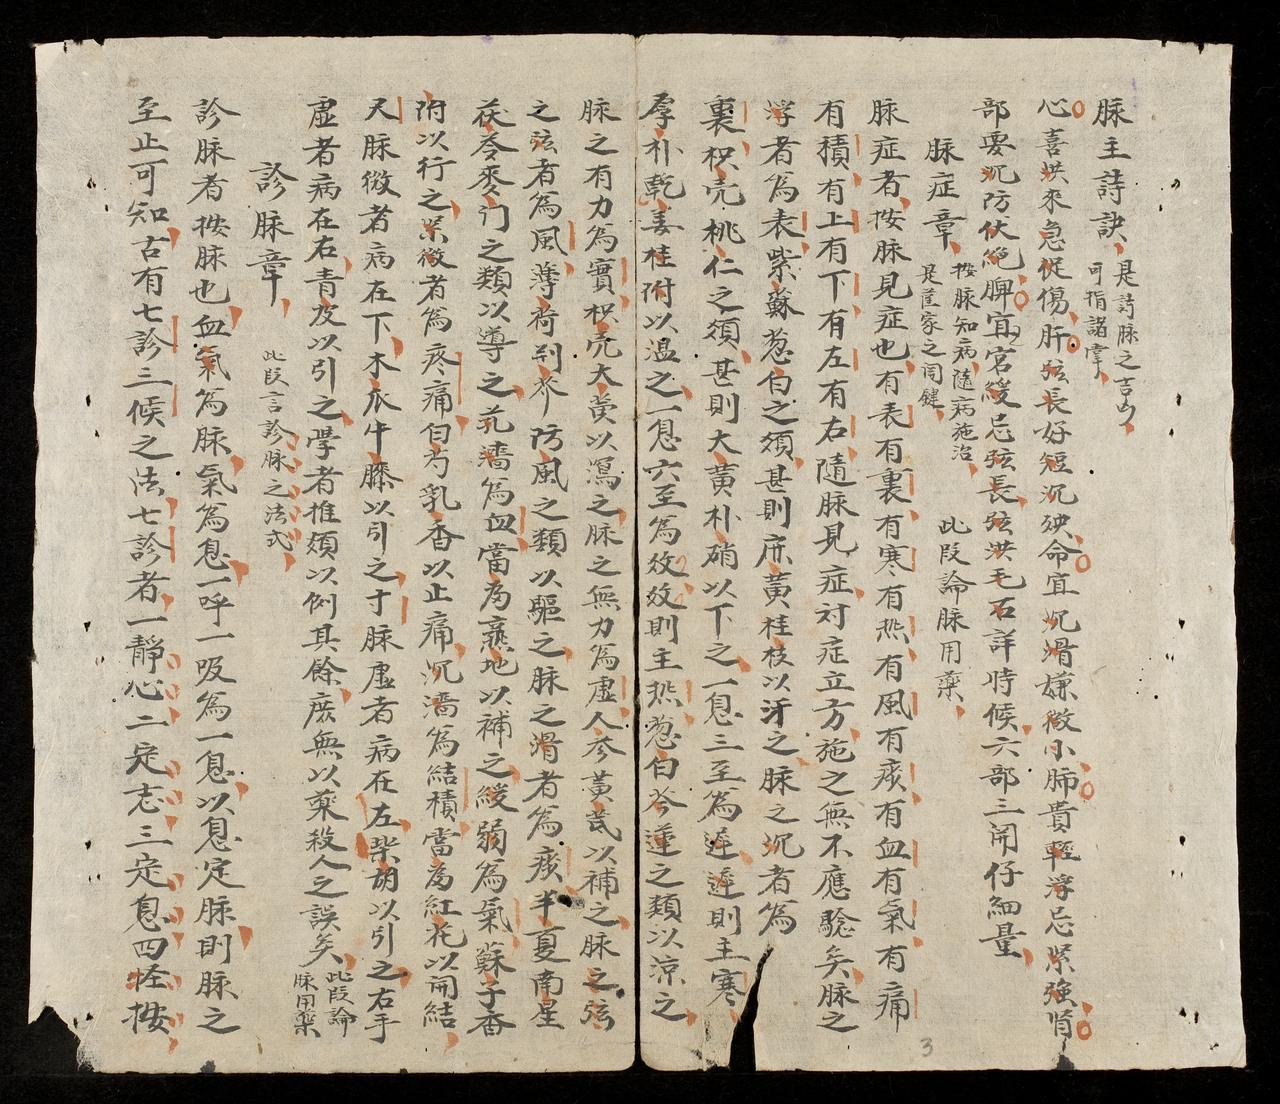 脉主詩訣 是詩脉之吉凶可指諸掌
心喜洪來急促傷肝弦長好短沉殃命宜沉滑嫌微小肺貴輕浮忌緊強腎
部要沉防伏絕脾宜宮緩忌弦長弦洪毛石詳時候六部三關仔細量
脉症章 按脉知病隨病施治是医家之関鍵 此段論脉用藥
脉症者按脉見症也有表有裏有寒有热有風有痰有血有氣有痛
有積有上有下有左有右隨脉見症对症立方施之無不應驗矣脉之
浮者爲表紫蘇葱白之類甚則麻黄桂枝以汗之脉之沉者爲
裏枳壳桃仁之類甚則大黄朴硝以下之一息三至爲遲遲則主寒
厚朴乾姜桂附以温之一息六至爲数数則主热葱白芩蓮之類以涼之
脉之有力為實枳壳大黄以瀉之脉之無力為虛人参黄芪以補之脉之弦
之弦者為風薄荷荆芥防風之類以驅之脉之滑者為痰半夏南星
茯苓麥门之類以導之芤濇爲血當为熟地以補之緩弱爲氣蘇子香
附以行之緊微者爲疼痛白芍乳香以止痛沉濇爲結積當为紅花以開結
尺脉微者病在下木瓜牛膝以引之寸脉虛者病在左柴胡以引之右手
虛者病在右青皮以引之學者推類以例其餘庶無以藥殺人之誤矣 此段論脉用藥
診脉章 此段言診脉之法式
診脉者按脉也血氣爲脉氣爲息一呼一吸爲一息以息定脉則脉之
至止可知古有七診三候之法七診者一靜心二定志三定息四怪按